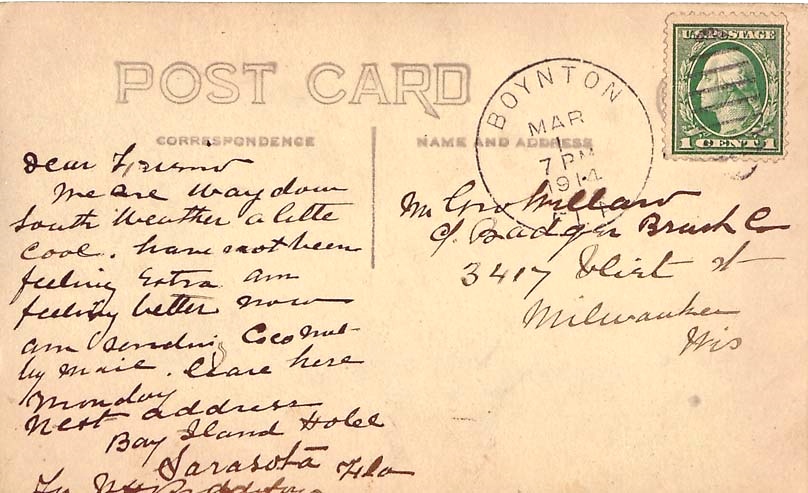 U.S. POSTAGE
1 CENT 1
POST CARD
BOYNTON
MAR
1
7 PM
1914
CORRESPONDENCE
NAME AND ADDRESS
Dear Friend
We are way down
South Weather a little
Cool. have not been
feeling Extra am
feeling better now
am sending Coconut
by mail. leave here
Monday
Next address
Bay Island Hotel
Sarasota Fla
Mr Geo Millard
c/o Badger Brush Co
3417 Vliet st
Milwaukee
Wis